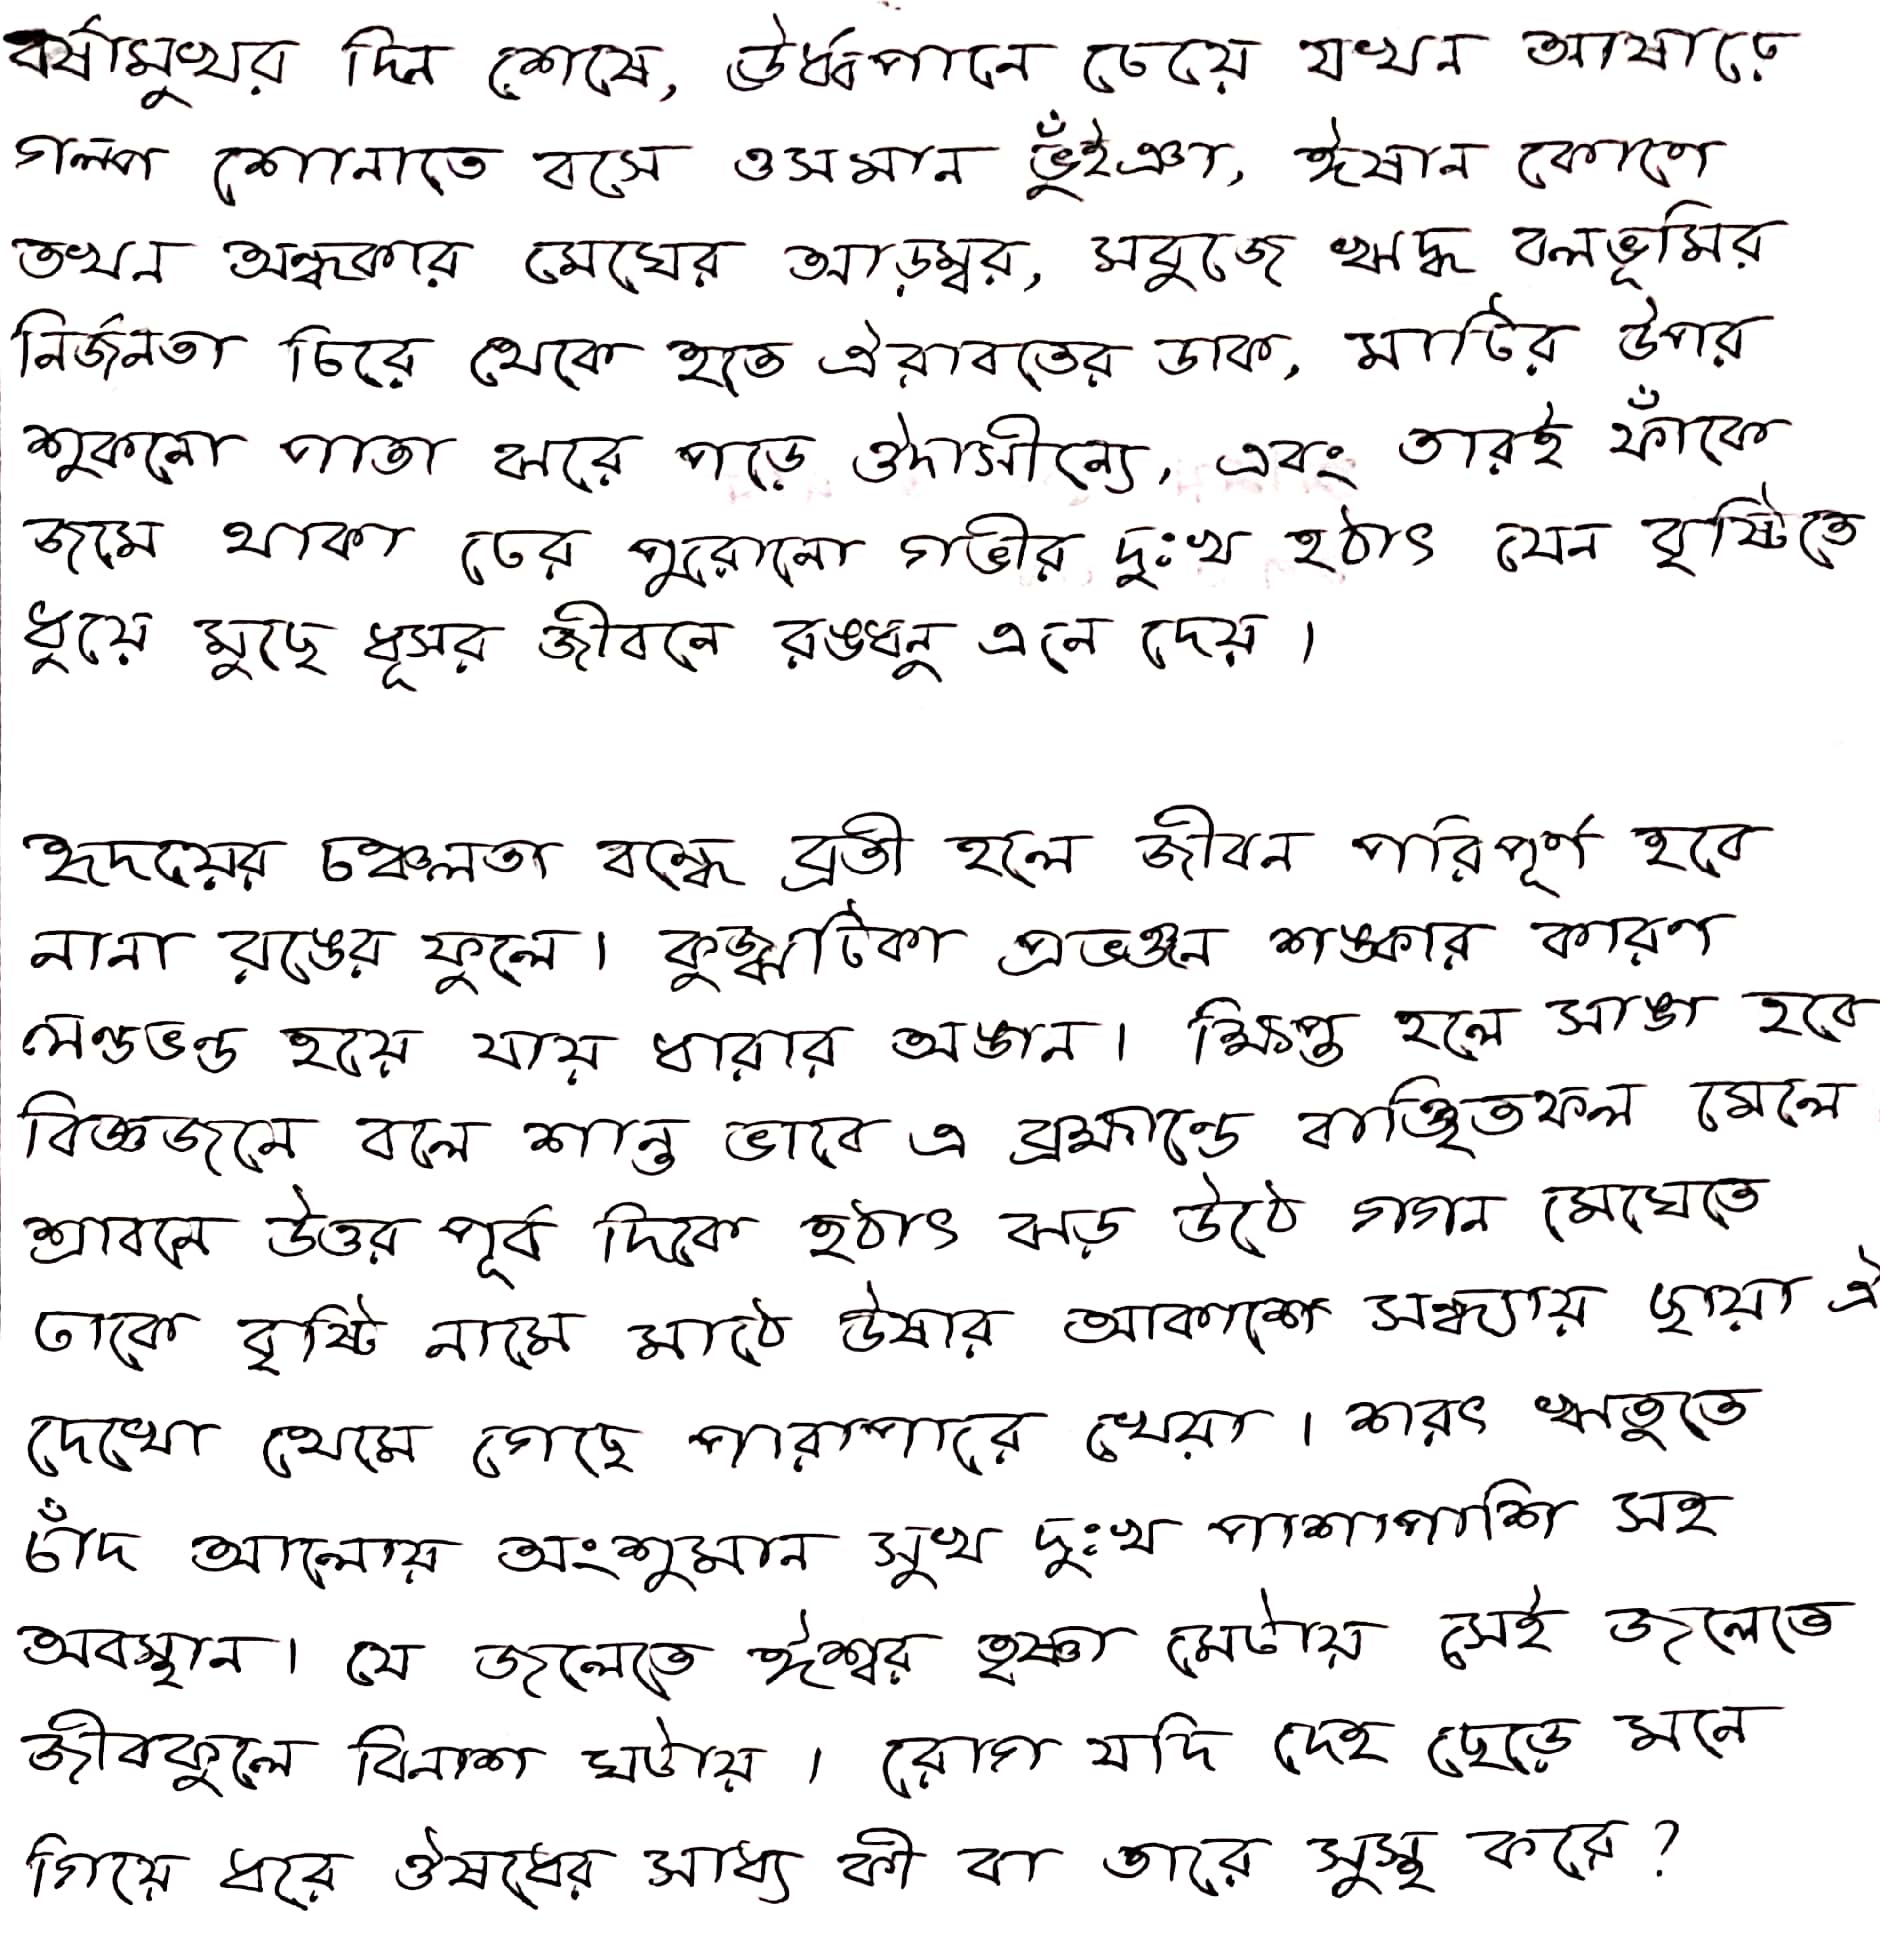 বর্ষামুখর দিন শেষে, উর্ধ্বপানে চেয়ে যখন আষাঢ়ে
গল্প শোনাতে বসে ওসমান ভুঁইঞা, ঈষান কোণে
তখন অন্ধকার মেঘের আড়ম্বর, সবুজে ঋদ্ধ বনভূমির
নির্জনতা চিরে থেকে হতে ঐরাবতের ডাক, মাটির উপর
শুকনো পাতা ঝরে পড়ে ঔদাসীন্যে, এবং তারই ফাঁকে
জমে থাকা ঢের পুরোনো গভীর দুঃখ হঠাৎ যেন বৃষ্টিতে
ধুয়ে মুছে ধূসর জীবনে রঙধনু এনে দেয়।
হৃদয়ের চঞ্চলতা বন্ধে ব্রতী হলে জীবন পরিপূর্ণ হবে
নানা রঙের ফুলে। কুজ্ঝটিকা প্রভঞ্জন শঙ্কার কারণ
লণ্ডভণ্ড হয়ে যায় ধারার অঙ্গন। ক্ষিপ্ত হলে সাঙ্গ হবে
বিজ্ঞজনে বলে শান্ত ভাবে এ ব্রহ্মাণ্ডে বাঞ্ছিতফল মেলে
শ্রাবনে উত্তর পূর্ব দিকে হঠাৎ ঝড় উঠে গগন মেঘেতে
ঢাকে বৃষ্টি নামে মাঠে উষার আকাশে সন্ধ্যায় ছায়া ঐ
দেখো থেমে গেছে পারাপারে খেয়া। শরৎ ঋতুতে
চাঁদ আলোয় অংশুমান সুখ দুঃখ পাশাপাশি সহ
অবস্থান। যে জলেতে ঈশ্বর তৃষ্ণা মেটায় সেই জলেতে
জীবকুলে বিনাশ ঘটায়। রোগ যদি দেহ ছেড়ে মনে
গিয়ে ধরে ঔষধের সাধ্য কী বা তারে সুস্থ করে?